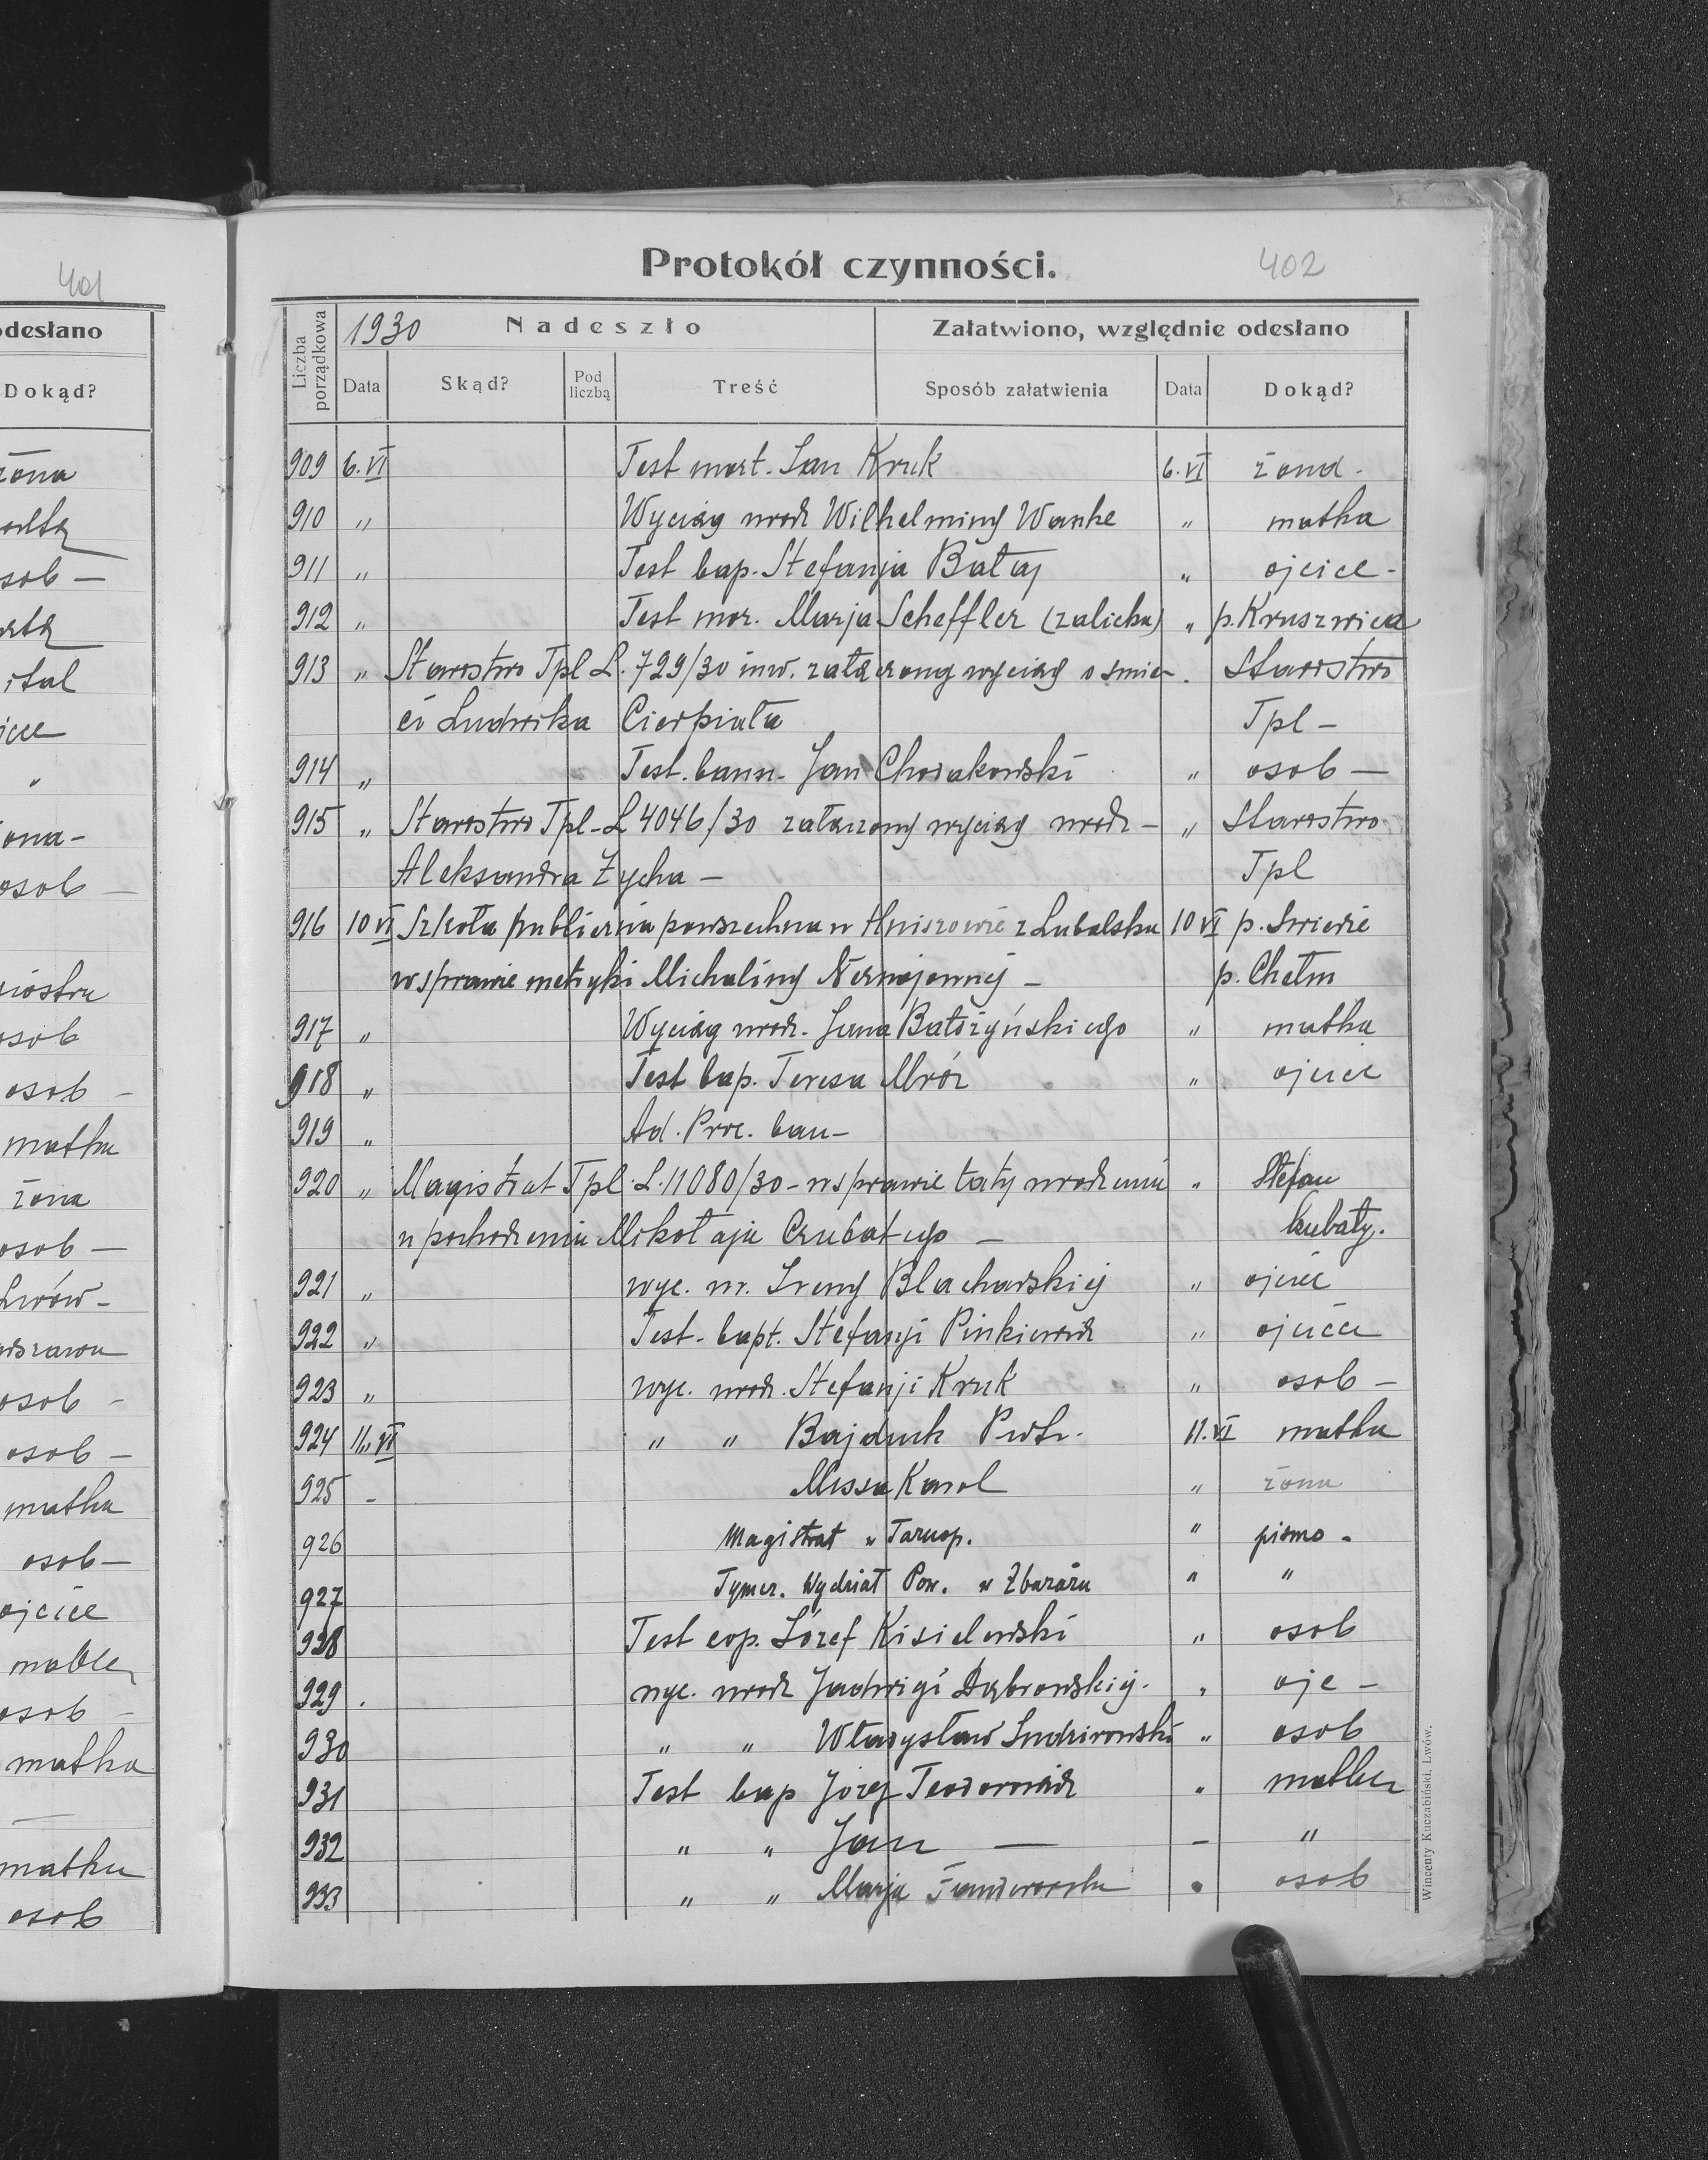 401
odesłano
Dokąd?
żona
osob —
osob —
ital
ona —
osob —
siostra
osob
osob —
matka
żona
osob —
Lwów —
osob —
osob —
matka
osob —
ojciec
osob —
matka
matka
osob
Protokół czynności.
402
Liczba porządkowa
1930
Nadeszło
Załatwiono, względnie odesłano
Data
Skąd?
Pod liczbą
Treść
Sposób załatwienia
Data
Dokąd?
909 6.VI Test mort. Jan Kruk 6.VI żona.
910 " Wyciąg urodz Wilhelminy Wanke " matka
911 " Test bap. Stefanja Bałaj " ojciec -
912 " Test mor. Marja Scheffler (zaliczka) " p. Kruszwica
913 " Starostwo Tpl L. 729/30 inw. załączony wyciąg o śmier - Starostwo
ci Ludwika Cierpiała Tpl -
914 " Test. bann. Jan Chodakowski " osob —
915 " Starostwo Tpl - L 4046/30 załączony wyciąg urodz - " Starostwo
Aleksandra Zycha — Tpl
916 10 VI Szkoła publiczna powszechna w Hniszowie z Lubelska 10 VI p. Świerże
w sprawie metryki Michaliny — p. Chełm
917 " Wyciąg urodz. Jana Bałdżyńskiego " matka
918 " Test bap. Teresa Mróz " ojciec
919 " Ad. Proc. ban —
920 " Magistrat Tpl. L. 11080/30 - w sprawie daty urodzenia " Stefan
u pochodzenia Mikołaja Czubatego — Czubaty.
921 " wyc. ur. Ireny Blacharskiej " ojciec
922 " Test. bapt. Stefanji Pinkiewicz " ojciec
923 " wyc. urodz. Stefanji Kruk " osob —
924 11.VI " " Bajduk Piotr. 11.VI matka
925 - Missa Karol " żona
926 Magistrat w Tarnop. " pismo -
927 Tymcz. Wydział Pow. w Zbarażu " "
928 Test cop. Józef Kisielewski " osob
929 . wyc. urodz Jadwigi Dąbrowskiej. " ojc —
930 " " Władysław " osob
931 Test bap Józef Teodorowicz " matka
932 " " Jan — - "
933 " " Marja " osob
Wincenty Kuczabiński, Lwów.